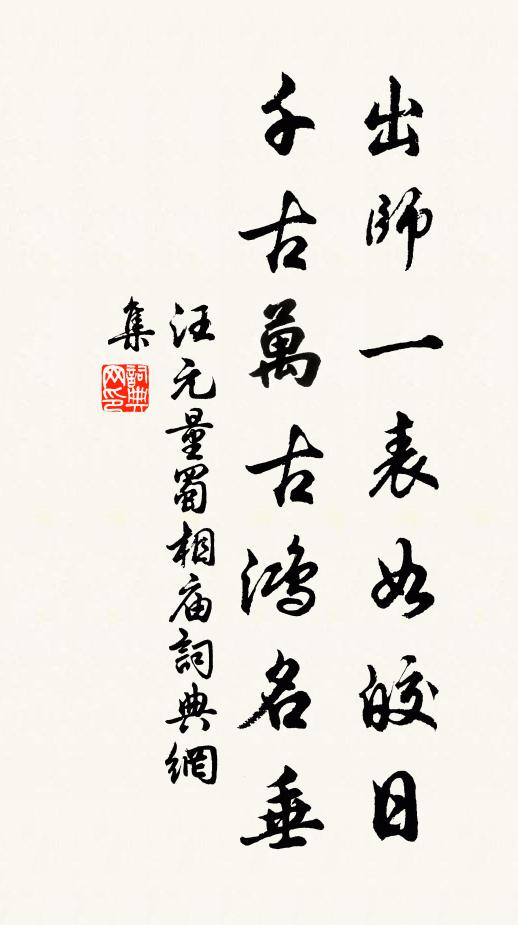 出師一表如皎日
千古萬古鴻名垂
汪元量蜀相庙詞典網
集
詞典网印